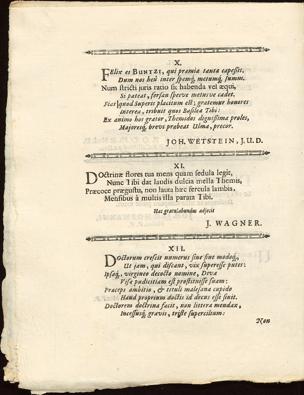 X.
FElix es BUNTZI, qui præmia tanta capessis,
Dum nos heu inter spemq́; metumq́; sumus.
Num stricti juris ratio sit habenda vel æqui,
Si pateat, forsan sperve metusve cadet.
Stet quod Superis placitum est; gratemur honores
interea, tribuit quos Basilea Tibi:
Ex animo hos grator, Themidos dignissima proles,
Majoresq́; breve præbeat Ulma, precor.
JOH. WETSTEIN, J.U.D.
XI.
DOctrinæ flores tua mens quam sedula legit,
Nunc Tibi dat laudis dulcia mella Themis,
Præcoce prægustu, non lauta hæc fercula lambis,
Mensibus à multis illa parata Tibi.
Hæc gratulabundus adjecit
J. WAGNER.
XII.
DOctorum crescit numerus sine fine modoq́;
Ut jam, qui discant, vix superesse putes:
Ipsaq́; virgineo decocto nomine, Diva
Visa pudicitiam est prostituisse suam:
Præceps ambitio, & tituli malesana cupido
Haud proprium doctis id decus esse sinit.
Doctorem doctrina facit, non littera mendax,
Incessusq́; gravis, triste supercilium:
Non